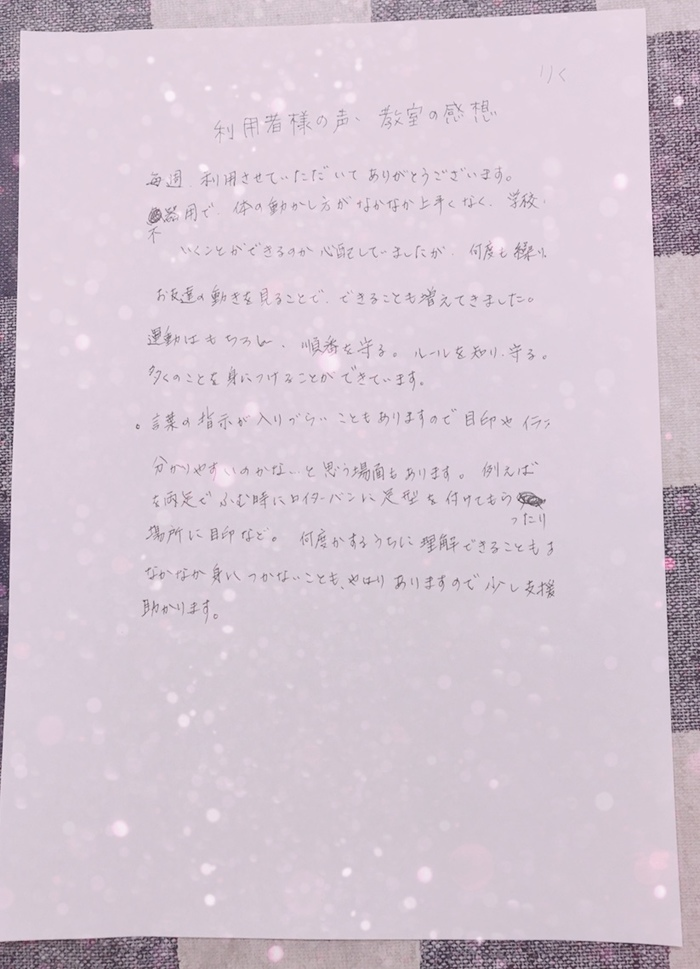 りく
利用者様の声、教室の感想
毎週、利用させていただいてありがとうございます。
不器用で、体の動かし方がなかなか上手くなく、学校、
いくことができるのか心配していましたが、何度も繰り
お友達の動きを見ることで、できることも増えてきました。
運動はもちろん、順番を守る。ルールを知り、守る。
多くのことを身につけることができています。
。言葉の指示が入りづらいこともありますので目印やイラ
分かりやすいのかな…と思う場面もあります。例えば
を両足でふむ時にロイター バンに足型を付けてもらったり
場所に目印など。何度かするうちに理解できることもま
なかなか身につかないことも、やはりありますので少し支援
助かります。